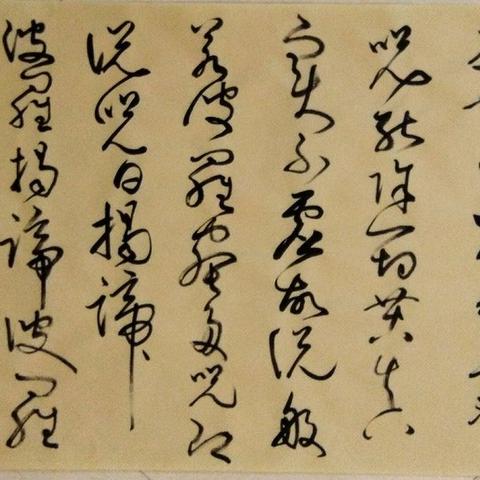 咒能除一切苦真
實不虛故說般
若波羅蜜多咒即
說咒曰揭諦
波羅揭諦波羅